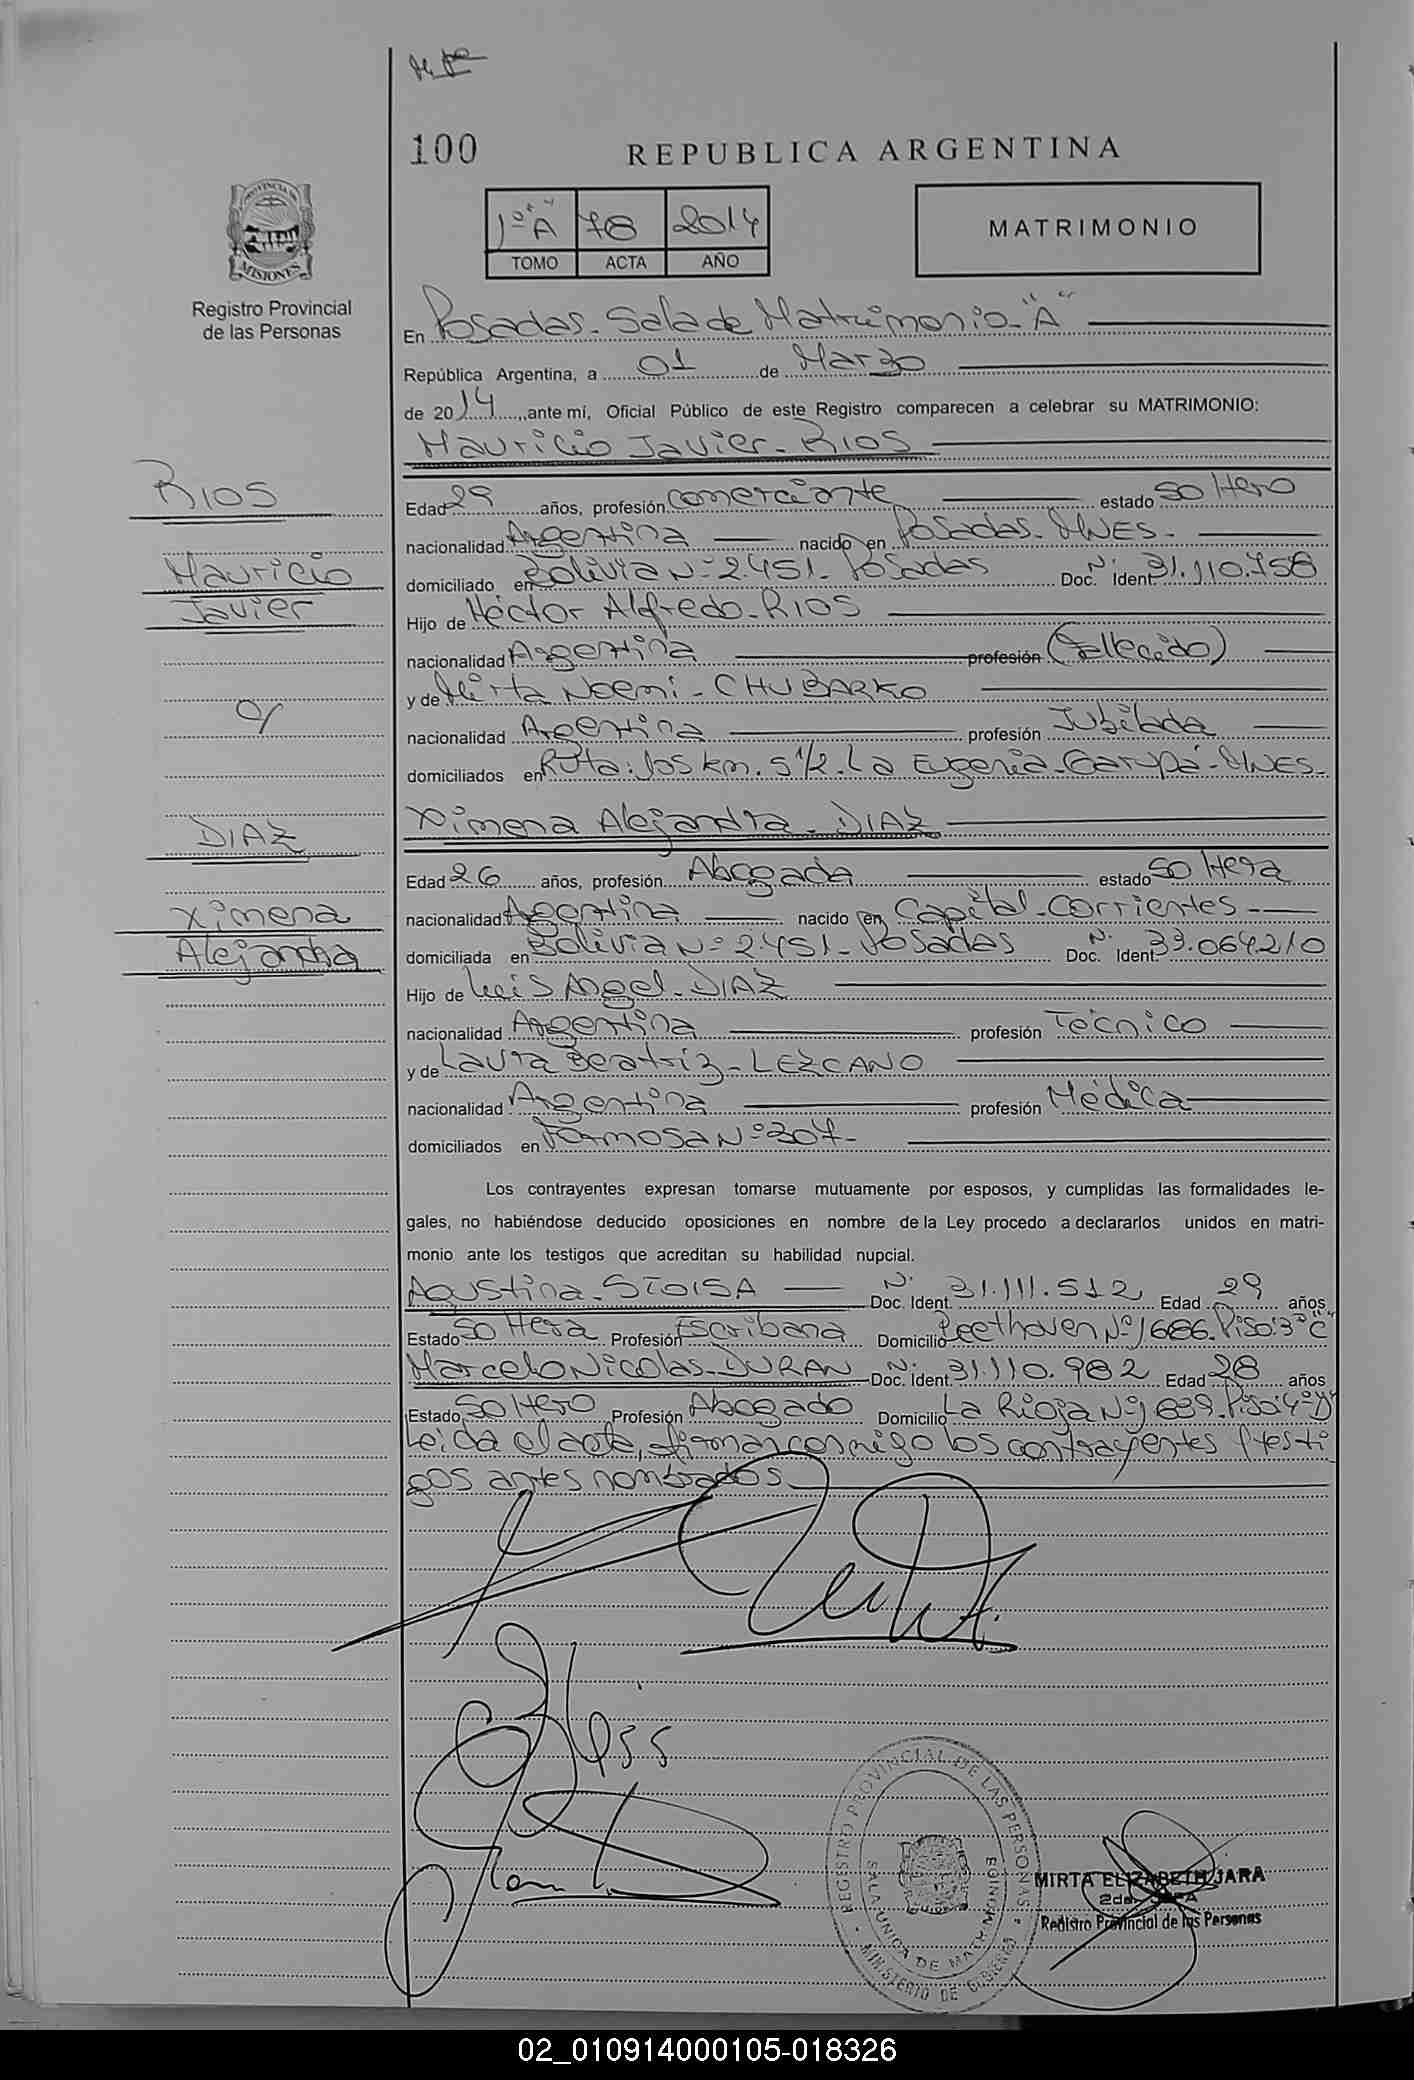 100
REPUBLICA ARGENTINA
1º "A" 78 2014
TOMO ACTA AÑO
MATRIMONIO
PROVINCIA DE
MISIONES
Registro Provincial
de las Personas
En Posadas. Sala de Matrimonio "A"
República Argentina, a 01 de Marzo
de 2014, ante mí, Oficial Público de este Registro comparecen a celebrar su MATRIMONIO:
Mauricio Javier. RIOS
RIOS
Mauricio
Javier
c/
DIAZ
Ximena
Alejandra
Edad 29 años, profesión comerciante estado soltero
nacionalidad Argentina nacido en Posadas. MNES.
domiciliado en Bolivia Nº 2.451. Posadas Doc. Ident. Nº 31.110.758
Hijo de Héctor Alfredo. RIOS
nacionalidad Argentina profesión (fallecido)
y de Mirta Noemi. CHUBARKO
nacionalidad Argentina profesión Jubilada
domiciliados en Ruta: 105 km. 5 1/2. La Eugenia. Garupá. MNES.
Ximena Alejandra. DIAZ
Edad 26 años, profesión Abogada estado soltera
nacionalidad Argentina nacido en Capital. Corrientes
domiciliada en Bolivia Nº 2.451. Posadas Doc. Ident. Nº 33.064.210
Hijo de Luis Angel. DIAZ
nacionalidad Argentina profesión Técnico
y de Laura Beatriz. LEZCANO
nacionalidad Argentina profesión Médica
domiciliados en Formosa Nº 307.
Los contrayentes expresan tomarse mutuamente por esposos, y cumplidas las formalidades le-
gales, no habiéndose deducido oposiciones en nombre de la Ley procedo a declararlos unidos en matri-
monio ante los testigos que acreditan su habilidad nupcial.
Agustina. STOISA Doc. Ident. Nº 31.111.512 Edad 29 años
Estado soltera Profesión Escribana Domicilio Beethoven Nº 1686. Piso: 3º "C"
Marcelo Nicolas. DURAN Doc. Ident. Nº 31.110.982 Edad 28 años
Estado soltero Profesión Abogado Domicilio La Rioja Nº 1639. Piso: 4º "D"
Leida el acta, firman conmigo los contrayentes y testi
gos antes nombrados
REGISTRO PROVINCIAL DE LAS PERSONAS
SALA UNICA DE MATRIMONIOS
MINISTERIO DE GOBIERNO
MIRTA ELIZABETH JARA
2da. JEFA
Registro Provincial de las Personas
02_010914000105-018326